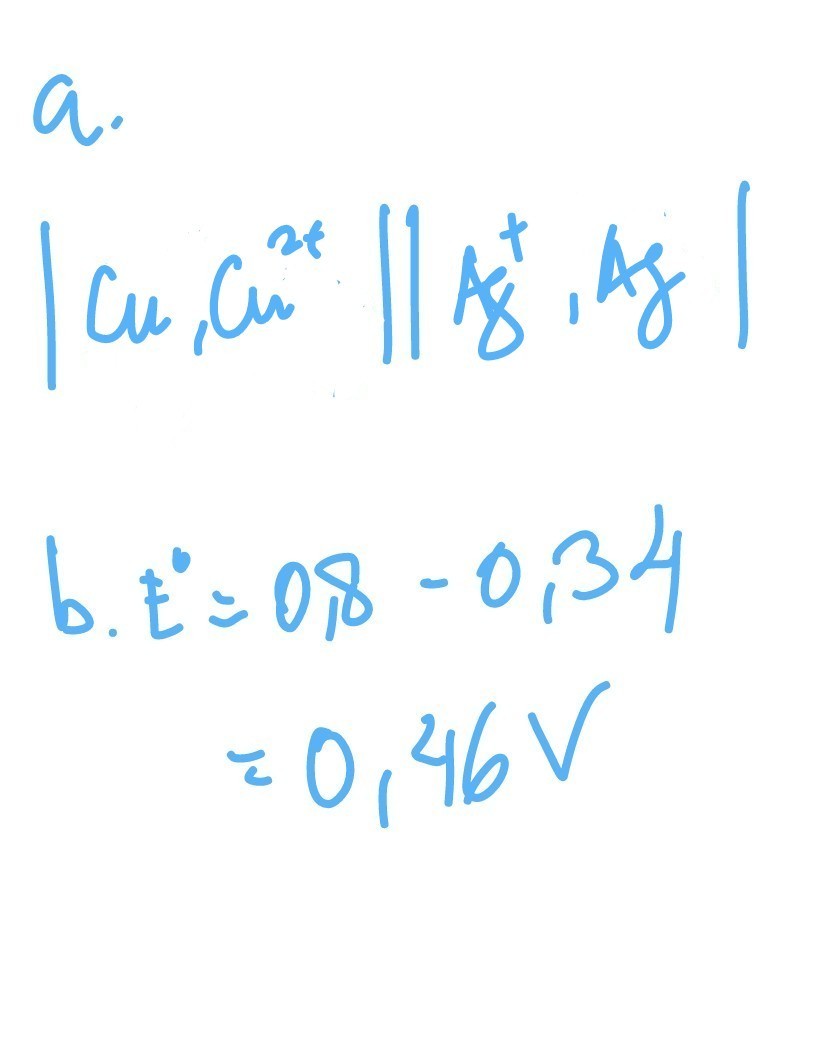 a.
| Cu, Cu²⁺ || Ag⁺, Ag |
b. E° = 0,8 - 0,34
= 0,46 V